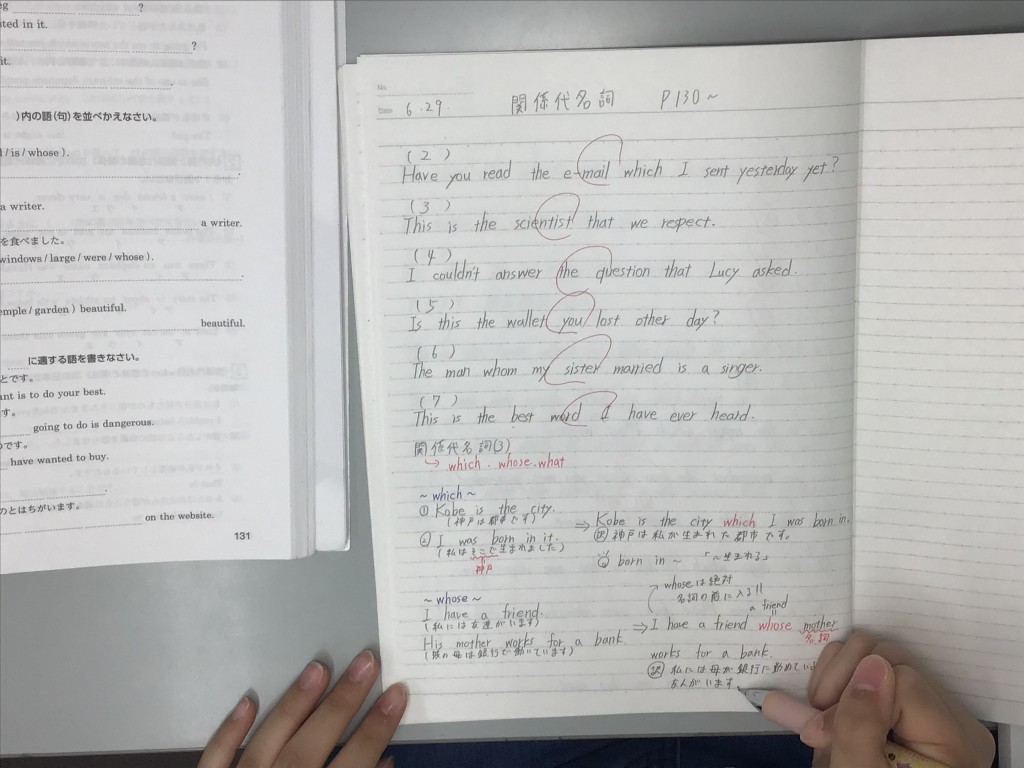 ?
ted in it.
?
it.
.
)内の語(句)を並べかえなさい。
/ is / whose ).
.
a writer.
a writer.
を食べました。
windows / large / were / whose ).
.
emple / garden ) beautiful.
beautiful.
に適する語を書きなさい。
とです。
ant is to do your best.
す。
going to do is dangerous.
のです。
have wanted to buy.
.
のとはちがいます。
on the website.
131
No.
Date 6.29. 関係代名詞 P130~
(2)
Have you read the e-mail which I sent yesterday yet?
(3)
This is the scientist that we respect.
(4)
I couldn't answer the question that Lucy asked.
(5)
Is this the wallet you lost other day?
(6)
The man whom my sister married is a singer.
(7)
This is the best word I have ever heard.
関係代名詞(3)
→ which . whose . what
~ which ~
① Kobe is the city.
(神戸は都市です)
② I was born in it.
(私はそこで生まれました)
神戸
⇒ Kobe is the city which I was born in.
訳 神戸は私が生まれた都市です。
born in ~ 「~生まれる」
~ whose ~
I have a friend.
(私には友達がいます)
His mother works for a bank.
(彼の母は銀行で働いています)
whoseは絶対
名詞の前に入る!!
a friend
⇒ I have a friend whose mother
名詞
works for a bank.
訳 私には母が銀行に勤めてい
友人がいます